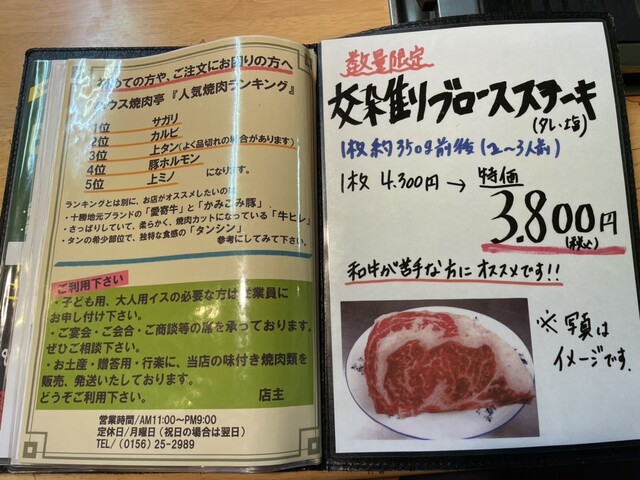 初めての方や、ご注文にお困りの方へ
ウス焼肉亭『人気焼肉ランキング』
1位 サガリ
2位 カルビ
3位 上タン(よく品切れの場合があります)
4位 豚ホルモン
5位 上ミノ になります。
ランキングとは別に、お店がオススメしたいのは
・十勝地元ブランドの「愛寄牛」と「かみこみ豚」
・さっぱりしていて、柔らかく、焼肉カットになっている「牛ヒレ」
・タンの希少部位で、独特な食感の「タンシン」
参考にしてみて下さい。
ご利用下さい
・子ども用、大人用イスの必要な方は従業員に
お申し付け下さい。
・ご宴会・ご会合・ご商談等の席を承っております。
ぜひご相談下さい。
・お土産・贈答用・行楽に、当店の味付き焼肉類を
販売、発送いたしております。
どうぞご利用下さい。 店主
営業時間/AM11:00~PM9:00
定休日/月曜日(祝日の場合は翌日)
TEL/(0156)25-2989
数量限定
交雑リブロースステーキ
(タレ・塩)
1枚約350g前後(2~3人前)
1枚 4.300円→特価
3.800円
(税込)
和牛が苦手な方にオススメです!!
※写真は
イメージです。